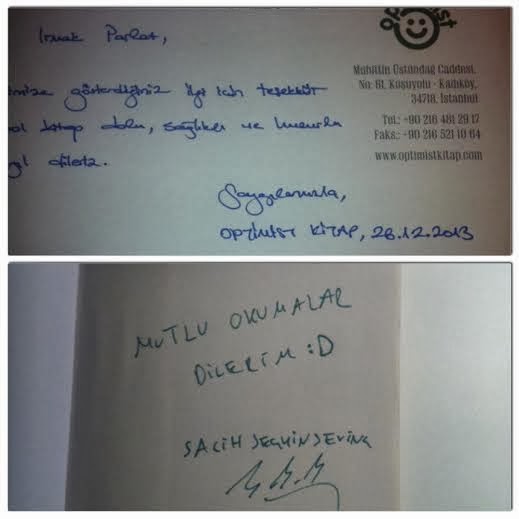 Irmak Parlat,
optimist
Muhittin Üstündağ Caddesi,
No: 61, Koşuyolu - Kadıköy,
34718, İstanbul
Tel.: +90 216 481 29 17
Faks.: +90 216 521 10 64
www.optimistkitap.com
gösterdiğiniz ilgi için teşekkür
kitap dolu, sağlıklı ve huzurlu
dileriz.
Saygılarımızla,
OPTİMİST KİTAP, 26.12.2013
MUTLU OKUMALAR
DİLERİM :D
SALİH SEÇKİN SEVİNÇ